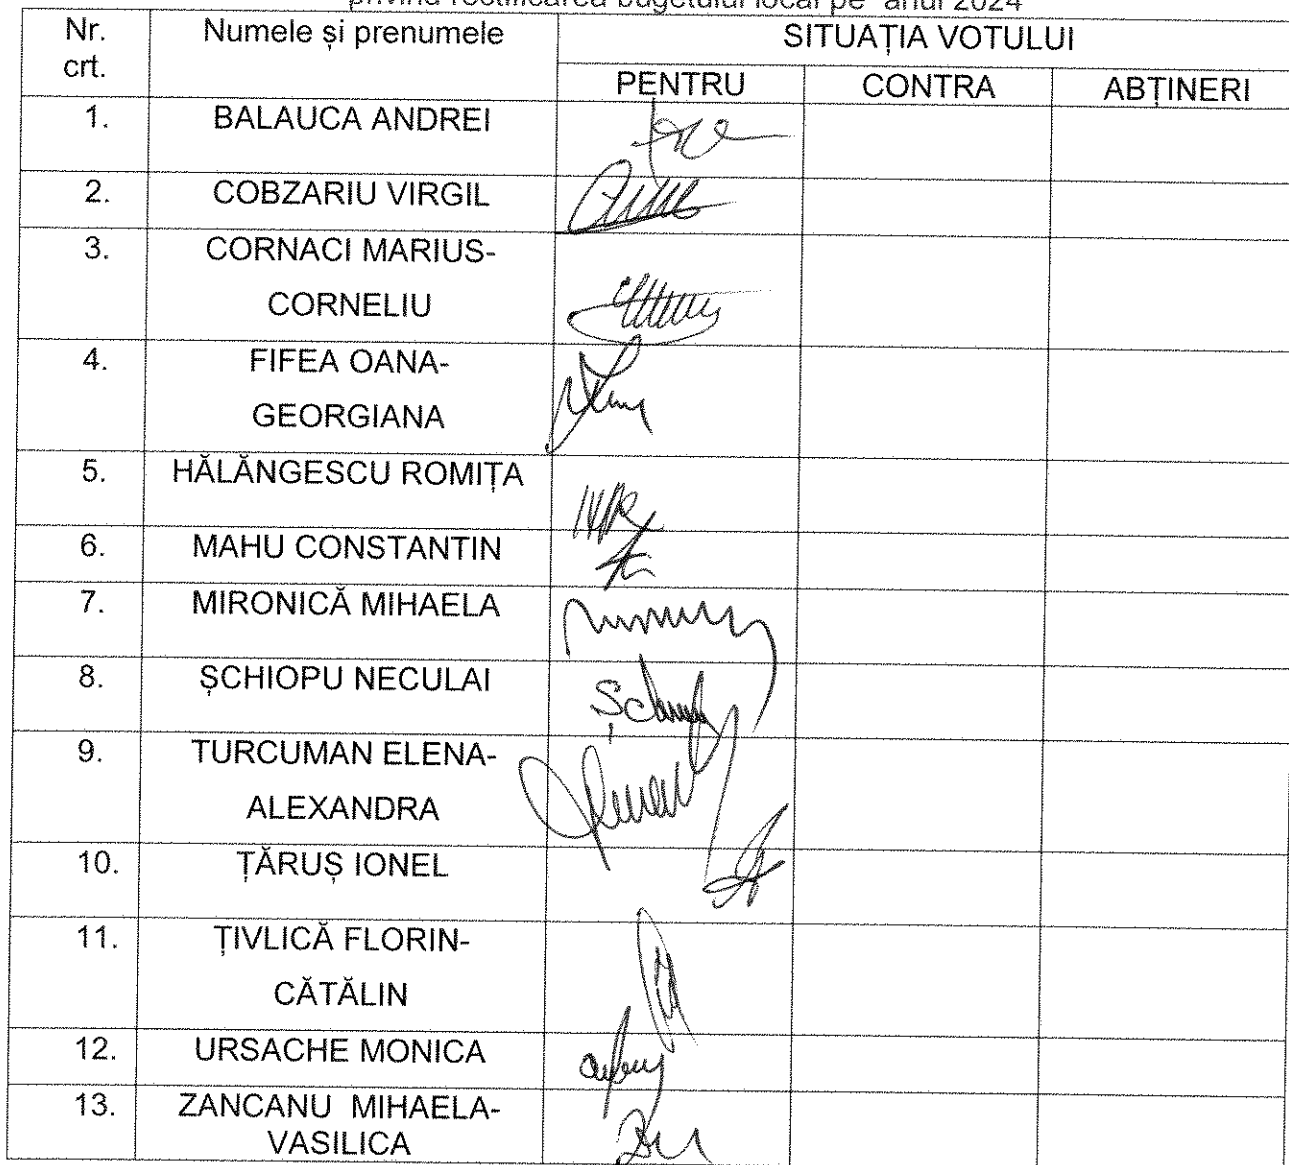 privind rectificarea bugetului local pe anul 2024
Nr. crt. Numele și prenumele SITUAȚIA VOTULUI
PENTRU CONTRA ABȚINERI
1. BALAUCA ANDREI
2. COBZARIU VIRGIL
3. CORNACI MARIUS-
CORNELIU
4. FIFEA OANA-
GEORGIANA
5. HĂLĂNGESCU ROMIȚA
6. MAHU CONSTANTIN
7. MIRONICĂ MIHAELA
8. ȘCHIOPU NECULAI
9. TURCUMAN ELENA-
ALEXANDRA
10. ȚĂRUȘ IONEL
11. ȚIVLICĂ FLORIN-
CĂTĂLIN
12. URSACHE MONICA
13. ZANCANU MIHAELA-
VASILICA